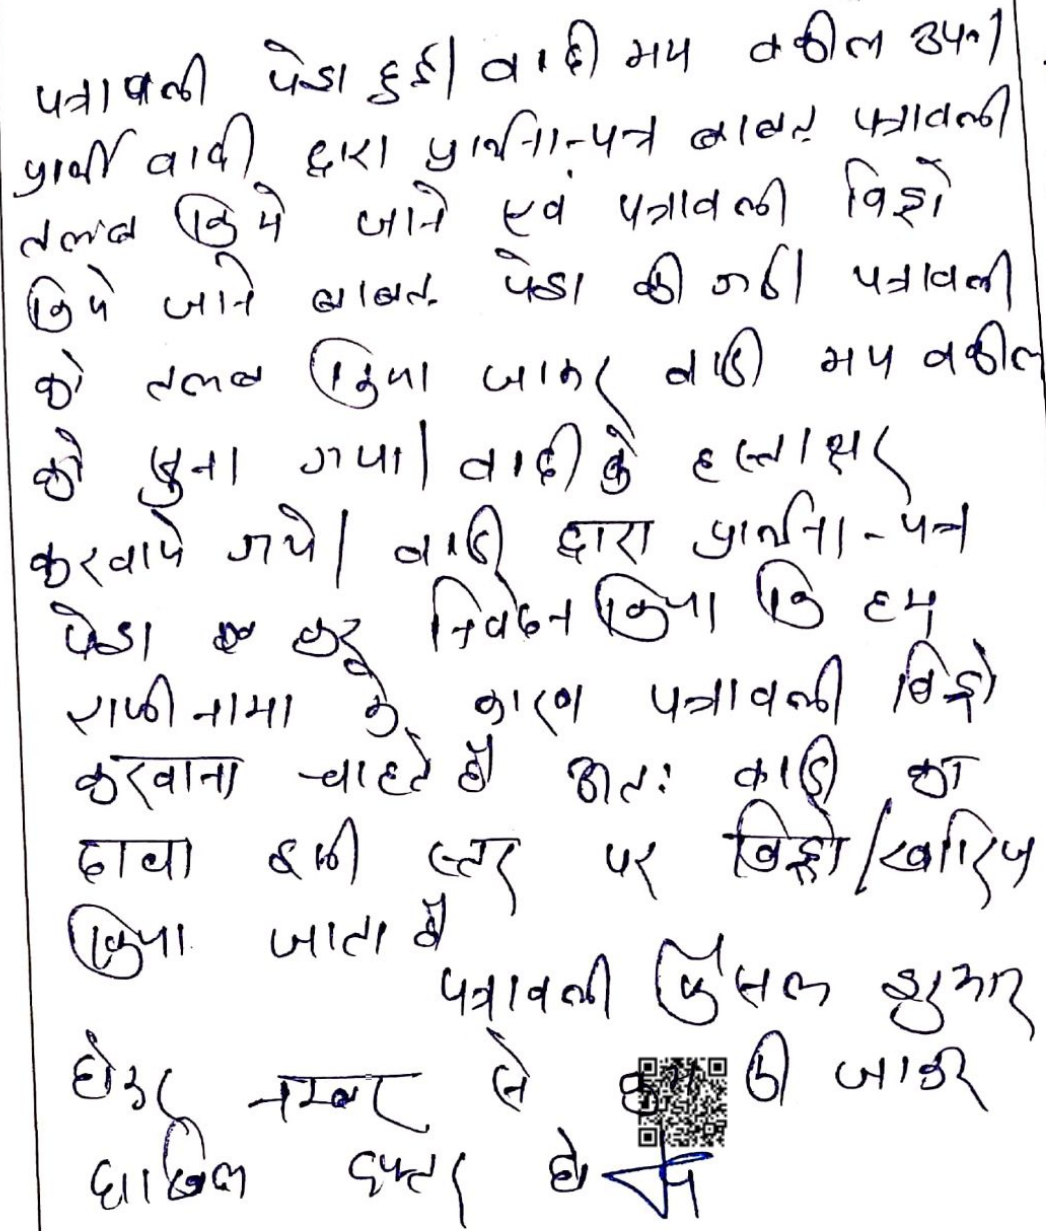 पत्रावली पेश हुई। वादी मय वकील उप०।
प्रार्थी वादी द्वारा प्रार्थना-पत्र बाबत पत्रावली
तलब किये जाने एवं पत्रावली विड्रो
किये जाने बाबत पेश की गई। पत्रावली
को तलब किया जाकर वादी मय वकील
को सुना गया। वादी के हस्ताक्षर
करवाये गये। वादी द्वारा प्रार्थना-पत्र
पेश कर निवेदन किया कि हम
राजीनामा के कारण पत्रावली विड्रो
करवाना चाहते है अतः वादी का
दावा इसी स्तर पर विड्रो/खारिज
किया जाता है
पत्रावली फैसल शुमार
होकर नम्बर से की जाकर
दाखिल दफ्तर हो